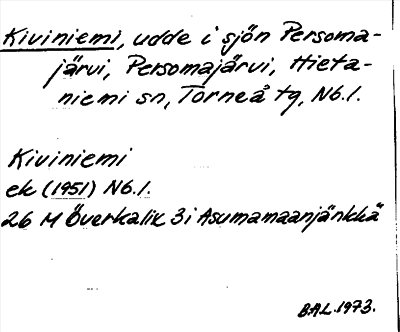 Kiviniemi, udde i sjön Persoma-
järvi, Persomajärvi, Hieta-
niemi sn, Torneå tg, Nb.l.
Kiviniemi
ek (1951) Nb.l.
26 M Överkalix 3i Asumamaanjänkkä
BAL.1973.